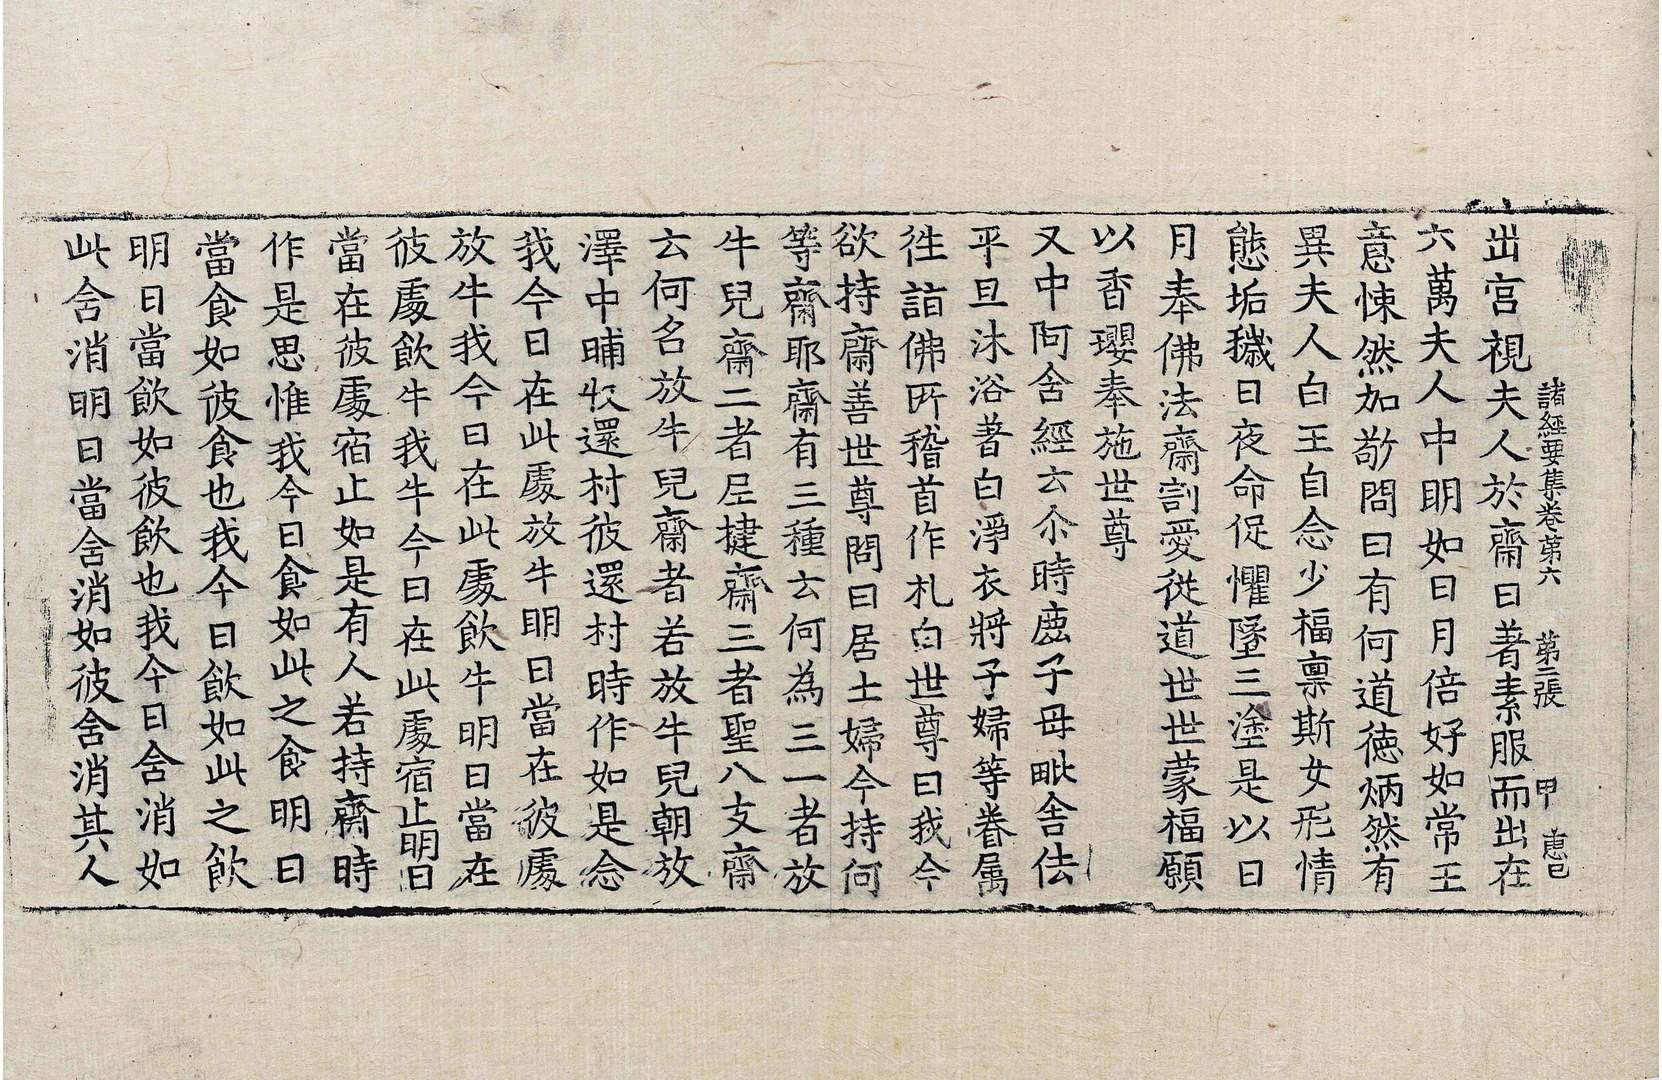 諸經要集卷第六　第三張　甲　恵巳
出宮視夫人於齋日著素服而出在
六萬夫人中明如日月倍好如常王
意悚然加敬問曰有何道徳炳然有
異夫人白王自念少福稟斯女形情
態垢穢日夜命促懼墜三塗是以日
月奉佛法齋割愛從道世世蒙福願
以香瓔奉施世尊
又中阿含經云尒時鹿子母毗舍佉
平旦沐浴著白淨衣將子婦等眷属
往詣佛所稽首作礼白世尊曰我今
欲持齋善世尊問曰居士婦今持何
等齋耶齋有三種云何為三一者放
牛兒齋二者尼揵齋三者聖八支齋
云何名放牛兒齋者若放牛兒朝放
澤中晡收還村彼還村時作如是念
我今日在此處放牛明日當在彼處
放牛我今日在此處飲牛明日當在
彼處飲牛我牛今日在此處宿止明日
當在彼處宿止如是有人若持齋時
作是思惟我今日食如此之食明日
當食如彼食也我今日飲如此之飲
明日當飲如彼飲也我今日含消如
此含消明日當含消如彼含消其人